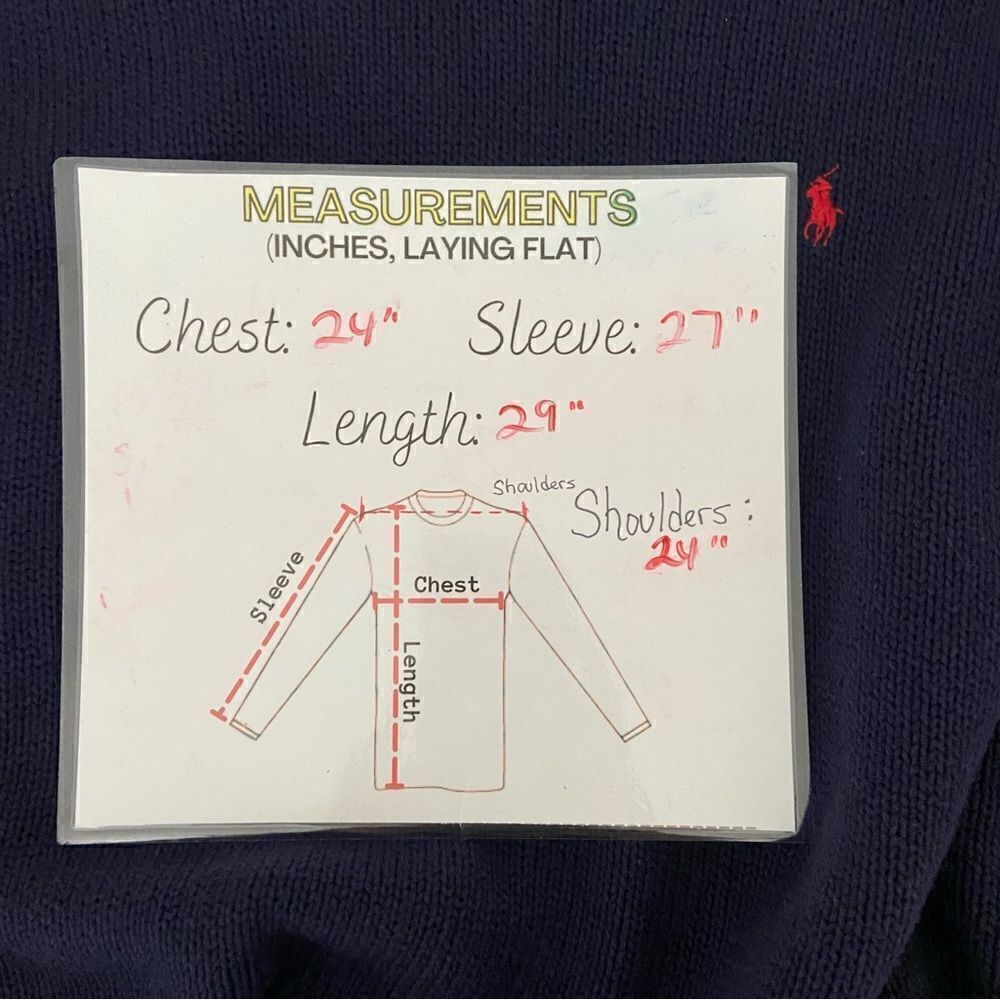 MEASUREMENTS
(INCHES, LAYING FLAT)
Chest: 24" Sleeve: 27"
Length: 29"
Shoulders
Shoulders:
24"
Sleeve
Chest
Length